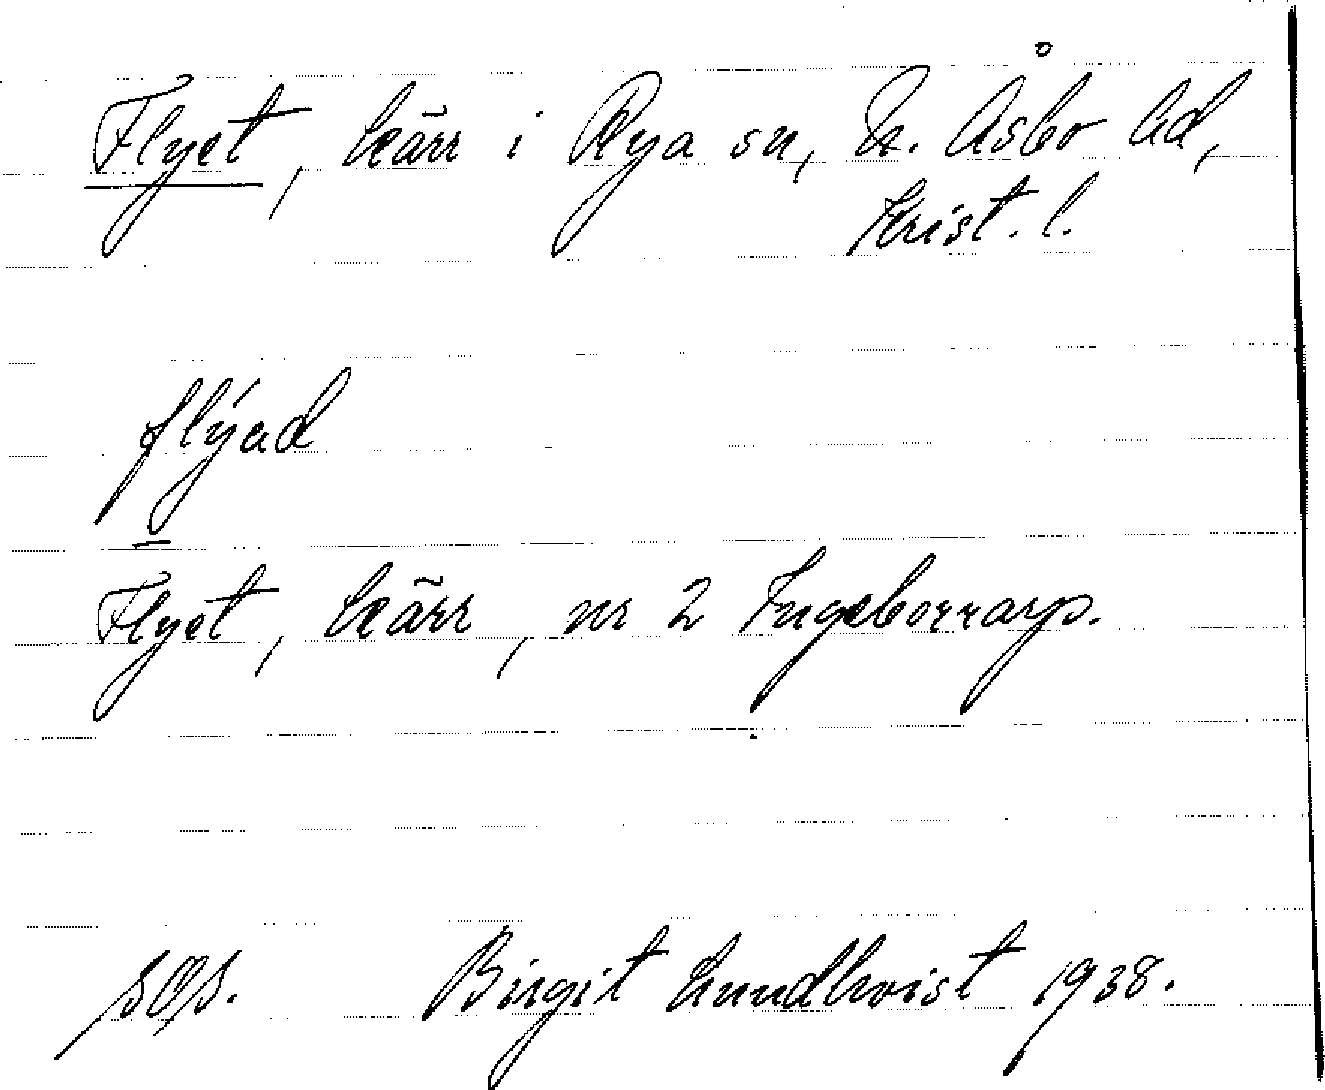 Flyet, kärr i Rya sn, N. Åsbo hd,
Krist. l.
flýad
Flyet, kärr, nr 2 Ingeborrarp.
Birgit Lundkvist 1938.